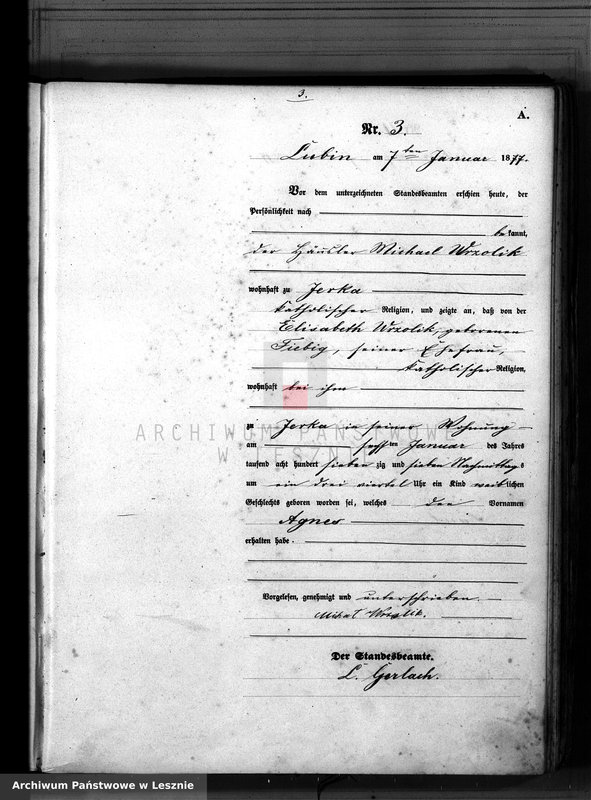 3.
A.
Nr. 3.
Lubin am 7ten Januar 1877.
Vor dem unterzeichneten Standesbeamten erschien heute, der
Persönlichkeit nach
bekannt,
der Häusler Michael Wrzolik
wohnhaft zu Jerka
katholischer Religion, und zeigte an, daß von der
Elisabeth Wrzolik, geborenen
Fiebig, seiner Ehefrau,
katholischer Religion,
wohnhaft bei ihm
zu Jerka in seiner Wohnung
ARCHIWUM PAŃSTWOWE
W LESZNIE
am ten Januar des Jahres
tausend acht hundert siebenzig und sieben Nachmittags
um ein drei viertel Uhr ein Kind weiblichen
Geschlechts geboren worden sei, welches den Vornamen
Agnes
erhalten habe.
Vorgelesen, genehmigt und unterschrieben.
Der Standesbeamte.
L. Gerlach.
Archiwum Państwowe w Lesznie